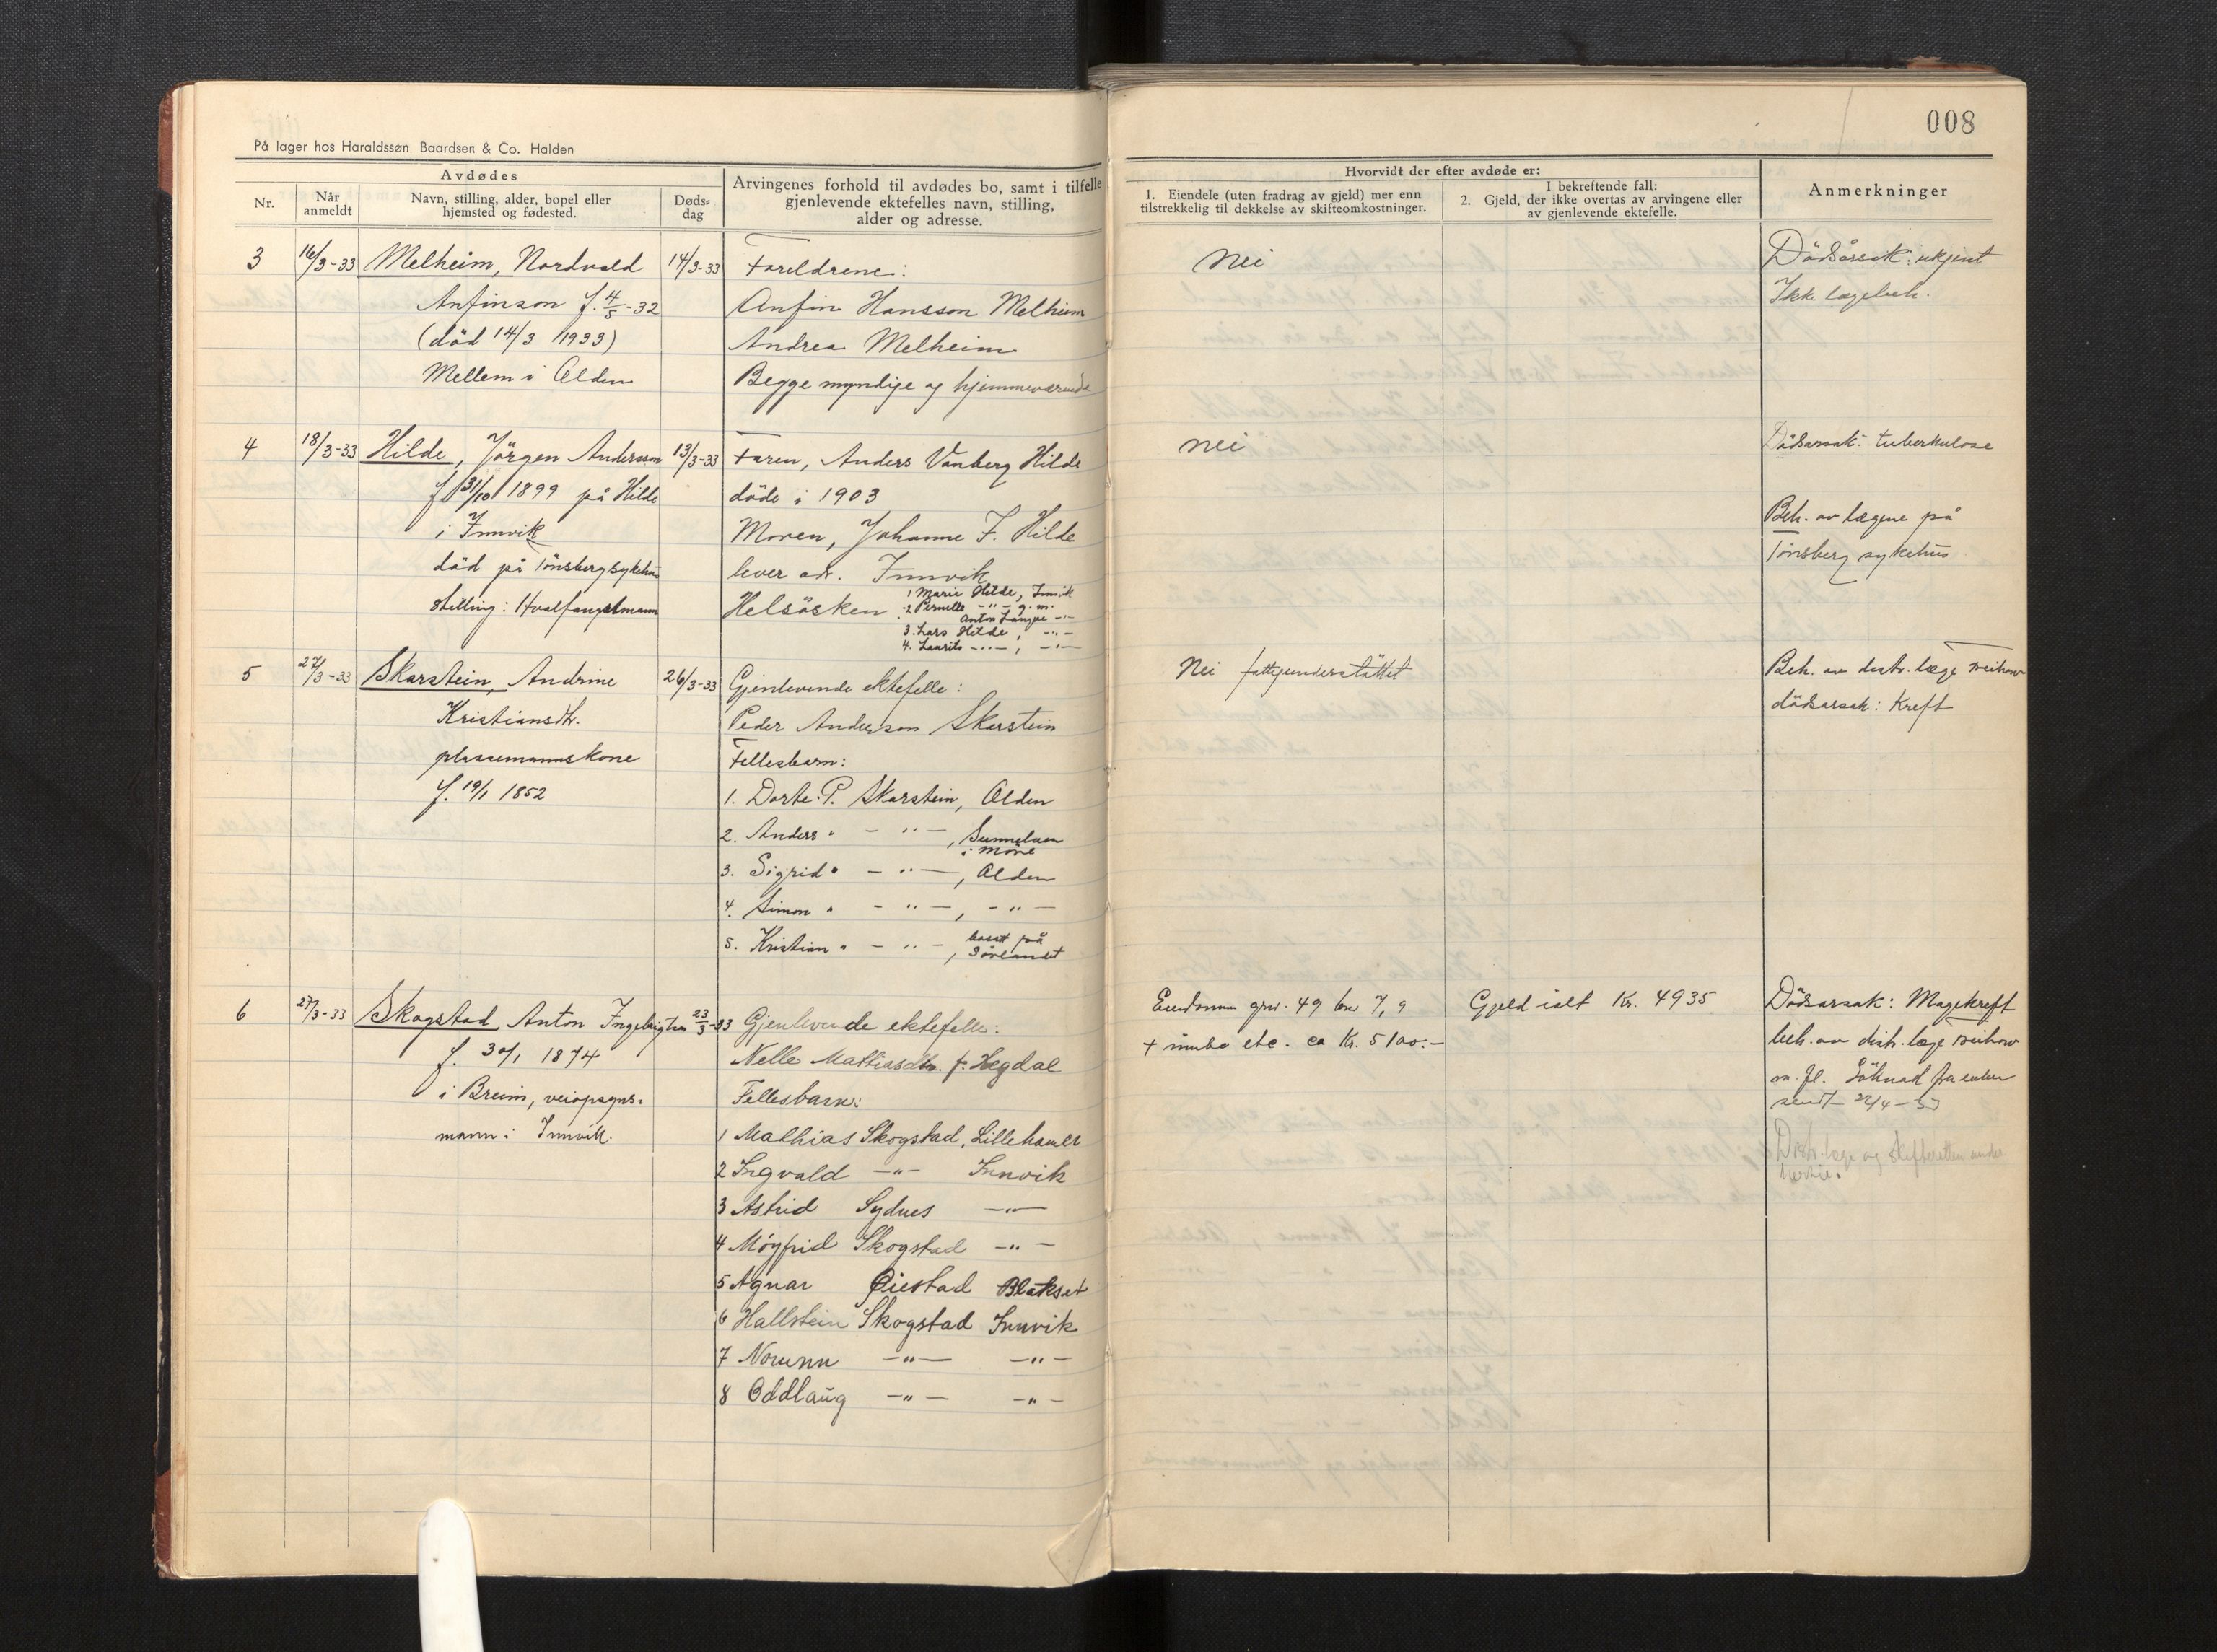 008
På lager hos Haraldssøn Baardsen & Co. Halden
Avdødes
Nr.
Når anmeldt
Navn, stilling, alder, bopel eller hjemsted og fødested.
Døds-dag
Arvingenes forhold til avdødes bo, samt i tilfelle gjenlevende ektefelles navn, stilling, alder og adresse.
Hvorvidt der efter avdøde er:
1. Eiendele (uten fradrag av gjeld) mer enn tilstrekkelig til dekkelse av skifteomkostninger.
I bekreftende fall:
2. Gjeld, der ikke overtas av arvingene eller av gjenlevende ektefelle.
Anmerkninger
3 16/3-33 Melheim, Nordvald 14/3-33 Foreldrene:
Anfinson f. 4/5-32 Anfin Hansson Melheim
(död 14/3 1933) Andrea Melheim
Mellem i Olden Begge myndige og hjemmeværende
Nei
Dödsårsak: ukjent
Ikke lægebeh.
4 18/3-33 Hilde, Jörgen Andersson 13/3-33 Faren, Anders Vanberg Hilde
f 31/10 1899 på Hilde döde i 1903
i Innvik Moren, Johanne F. Hilde
död på Tönsberg sykehus lever adr. Innvik
Stilling: Hvalfangstmann Helsösken 1 Marie Hilde, Innvik
2 Pernille -"- g. m.
Anton Lange -"-
3. Lars Hilde, -"-
4. Laurits -"-, -"-
Nei
Dödsarsak: tuberkulose
Beh. av lægene på
Tönsberg sykehus
5 27/3-33 Skarstein, Andrine 26/3-33 Gjenlevende ektefelle:
Kristiansdtr. Peder Anderson Skarstein
plassemannskone Fellesbarn:
f. 19/1 1852 1. Dorte P. Skarstein, Olden
2. Anders " -"-, Sunnylven
i Möre
3. Sigrid " -"-, Olden
4. Simon " -"-, -"-
5. Kristian " -"-, bosat på
Sörlandet
Nei fattigunderstöttet
Beh. av distr. læge
dödsarsak: Kreft
6 27/3-33 Skogstad Anton Ingebrigtsen 23/3-33 Gjenlevende ektefelle:
f. 30/1 1874 Nelle Mathiasdtr. f. Hegdal
i Breim, veiopsyns- Fellesbarn:
mann i Innvik. 1 Mathias Skogstad, Lillehamer
2 Ingvald -"- Innvik
3 Astrid Sydnes -"-
4 Möyfrid Skogstad -"-
5 Agnar Øiestad Blakset
6 Hallstein Skogstad Innvik
7 Norunn -"- -"-
8 Oddlaug -"- -"-
Eiendommen gnr. 49 bnr 7, 9
+ innbo etc. ca Kr. 5100.-
Gjeld ialt Kr. 4935
Dödsarsak: Magekreft
beh. av distr. læge
m. fl. Söknad fra enken
sendt 22/4-33
Distr. læge og skifteretten under